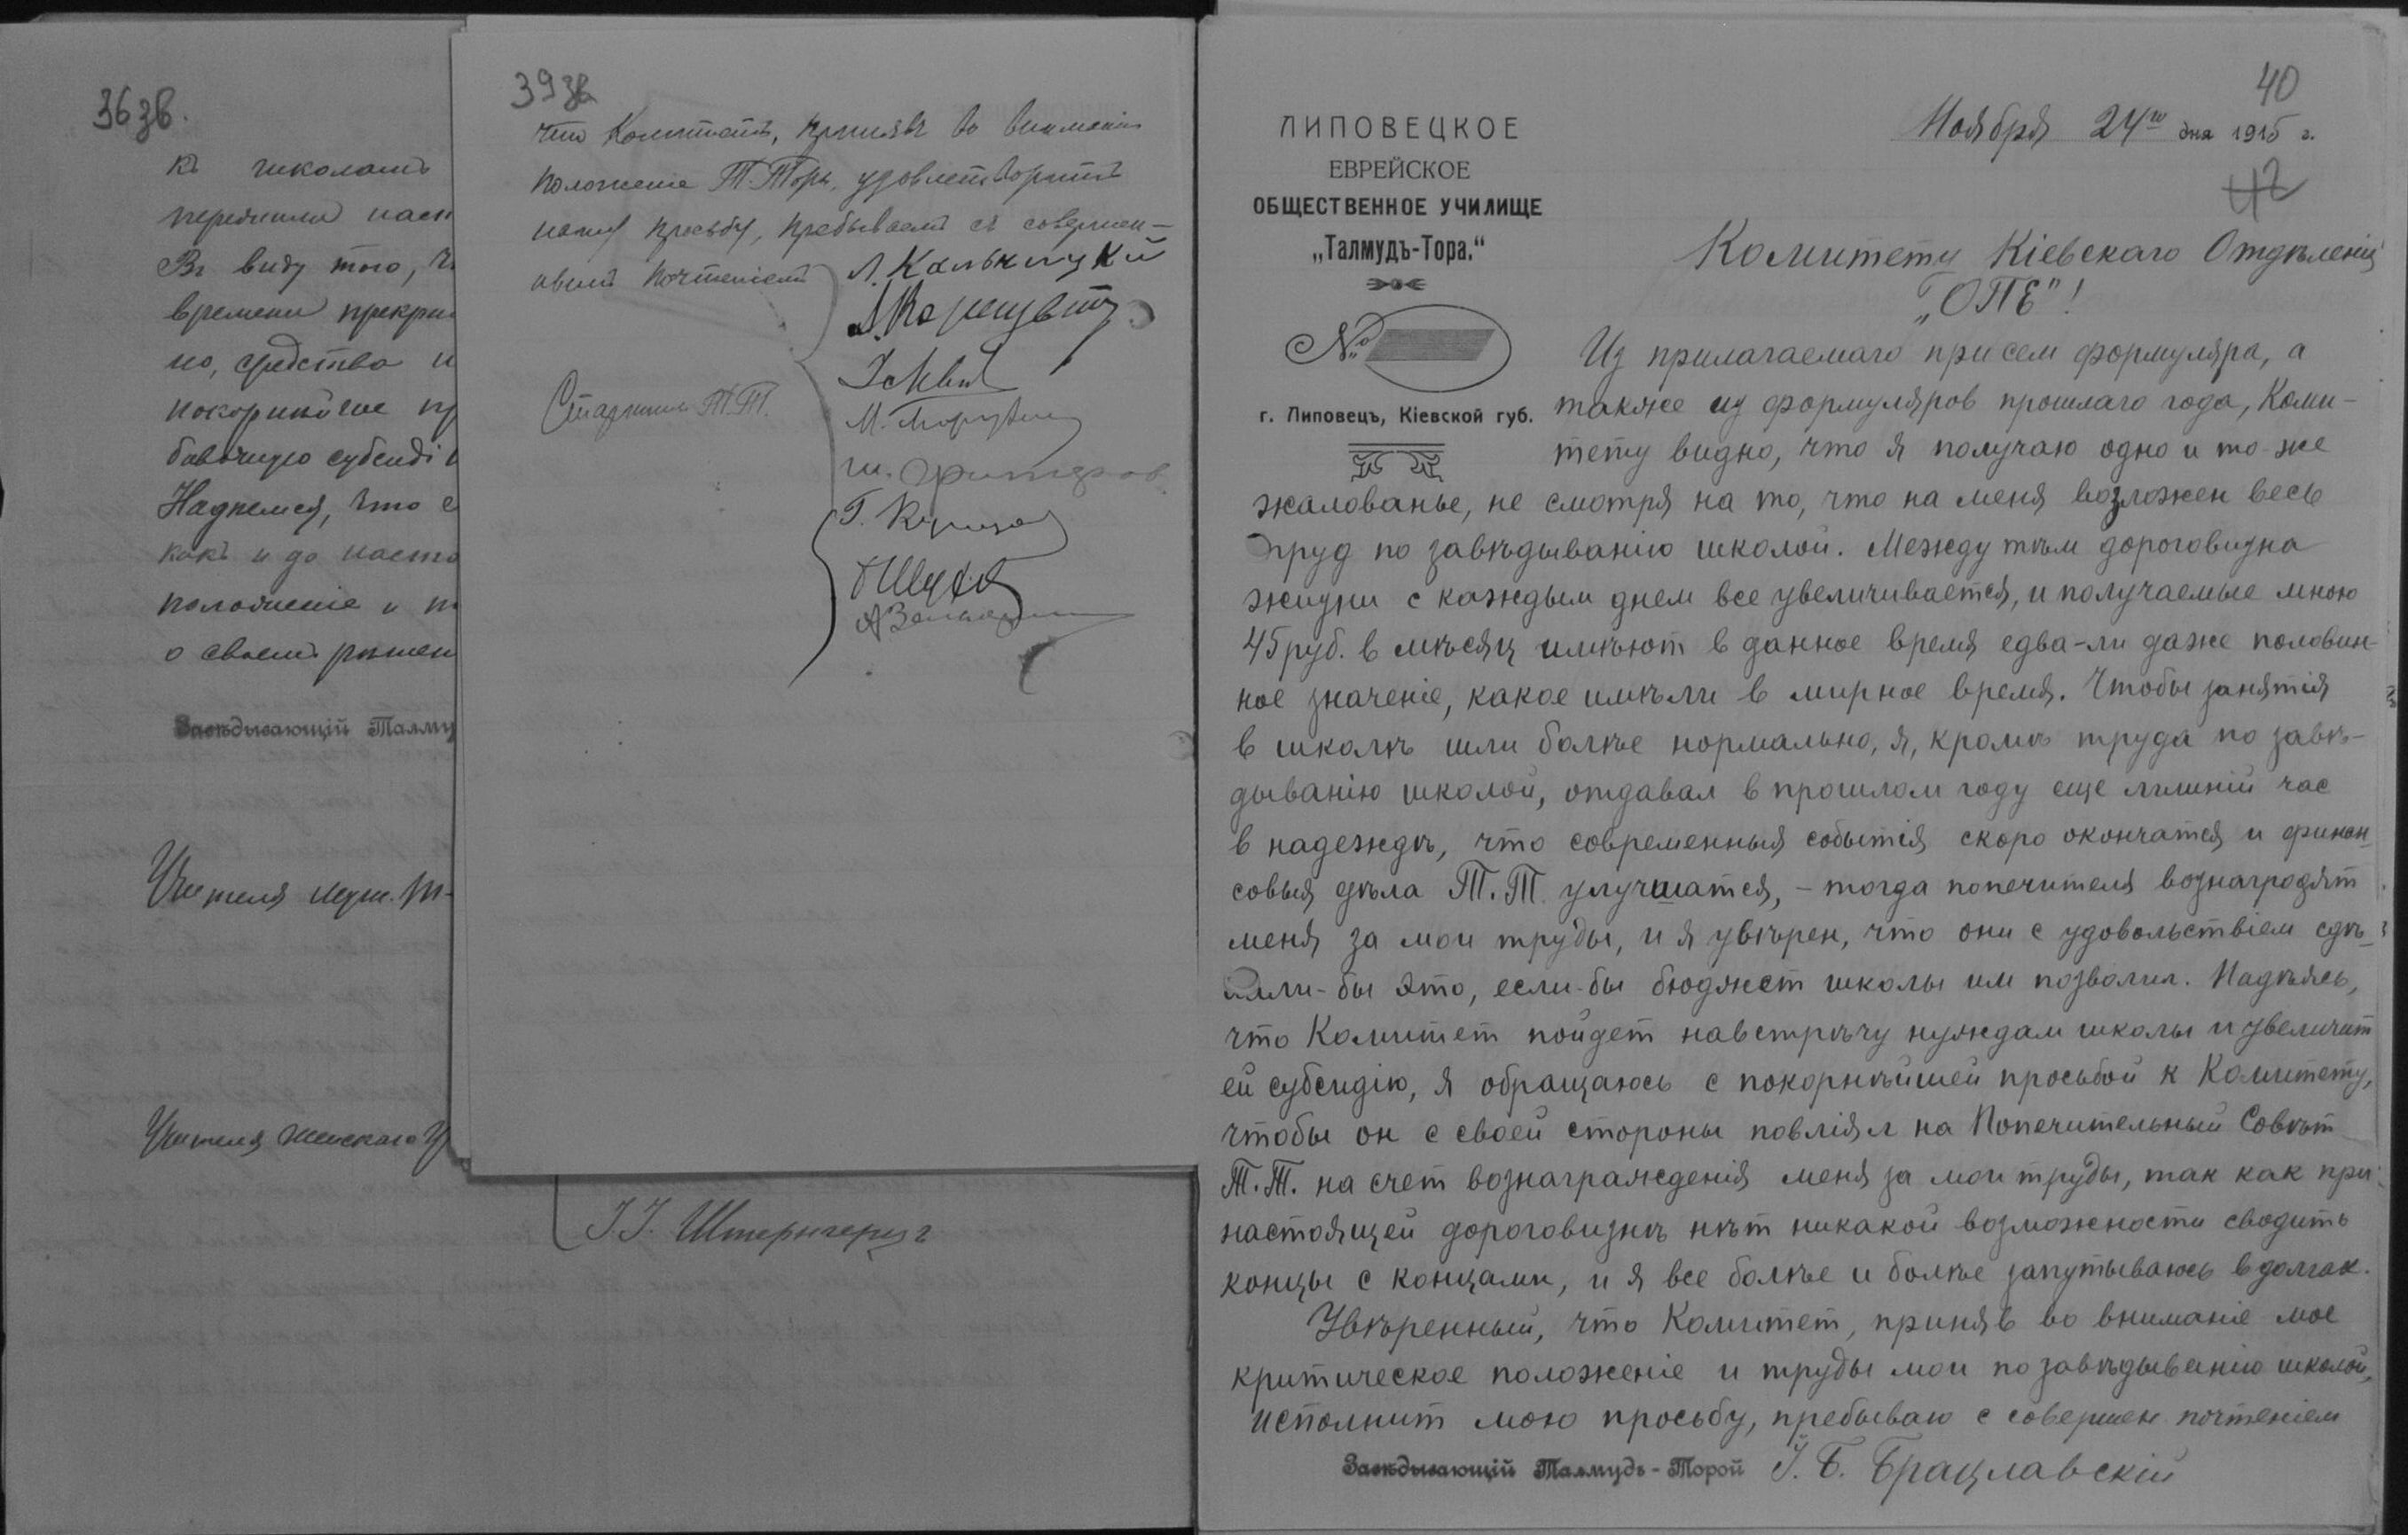 36 зв.
къ школамъ
перешли
Въ виду того,
времени
но, средства
покорнѣйше
бавочную субсидi
Надѣемся, что
какъ и до насто
положенiе и
о своемъ рѣшен
Завѣдывающiй Талму
Учителя
Учителя Женскаго У
39 зв
что Комитетъ, принявъ во вниманiе
положенiе Т. Торы, удовлетворитъ
нашу просьбу, пребываемъ съ совершен-
нымъ почтенiемъ
Старшины Т.Т.
Г. Купцов
I J. Штернгерцъ
40
Ноября 24го дня 1915 г.
42
ЛИПОВЕЦКОЕ
ЕВРЕЙСКОЕ
ОБЩЕСТВЕННОЕ УЧИЛИЩЕ
„Талмудъ-Тора.“
№
г. Липовецъ, Кiевской губ.
Комитету Кiевскаго Отдѣленiя
„ОПЕ"!
Из прилагаемаго при сем формуляра, а
также из формуляров прошлаго года, Коми-
тету видно, что я получаю одно и то-же
жалованье, не смотря на то, что на меня возложен весь
труд по завѣдыванiю школой. Между тѣм дороговизна
жизни с каждым днем все увеличивается, и получаемые мною
45 руб. в мѣсяц имѣют в данное время едва-ли даже половин-
ное значенiе, какое имѣли в мирное время. Чтобы занятiя
в школѣ шли болѣе нормально, я, кромѣ труда по завѣ-
дыванiю школой, отдавал в прошлом году еще лишнiй час
в надеждѣ, что современныя событiя скоро окончатся и финан-
совыя дѣла Т.Т. улучшатся, - тогда попечителя вознаградят
меня за мои труды, и я увѣрен, что они с удовольствiем сдѣ-
лали-бы это, если-бы бюджет школы им позволил. Надѣясь,
что Комитет пойдет навстрѣчу нуждам школы и увеличит
ей субсидiю, я обращаюсь с покорнѣйшей просьбой к Комитету,
чтобы он с своей стороны повлiял на Попечительный Совѣт
Т.Т. на счет вознагражденiя меня за мои труды, так как при
настоящей дороговизнѣ нѣт никакой возможности сводить
концы с концами, и я все болѣе и болѣе запутываюсь в долгах.
Увѣренный, что Комитет, приняв во вниманiе мое
критическое положенiе и труды мои по завѣдыванiю школой,
исполнит мою просьбу, пребываю с совершен. почтенiем
Завѣдывающiй Талмудъ-Торой I. Б. Брацлавскiй